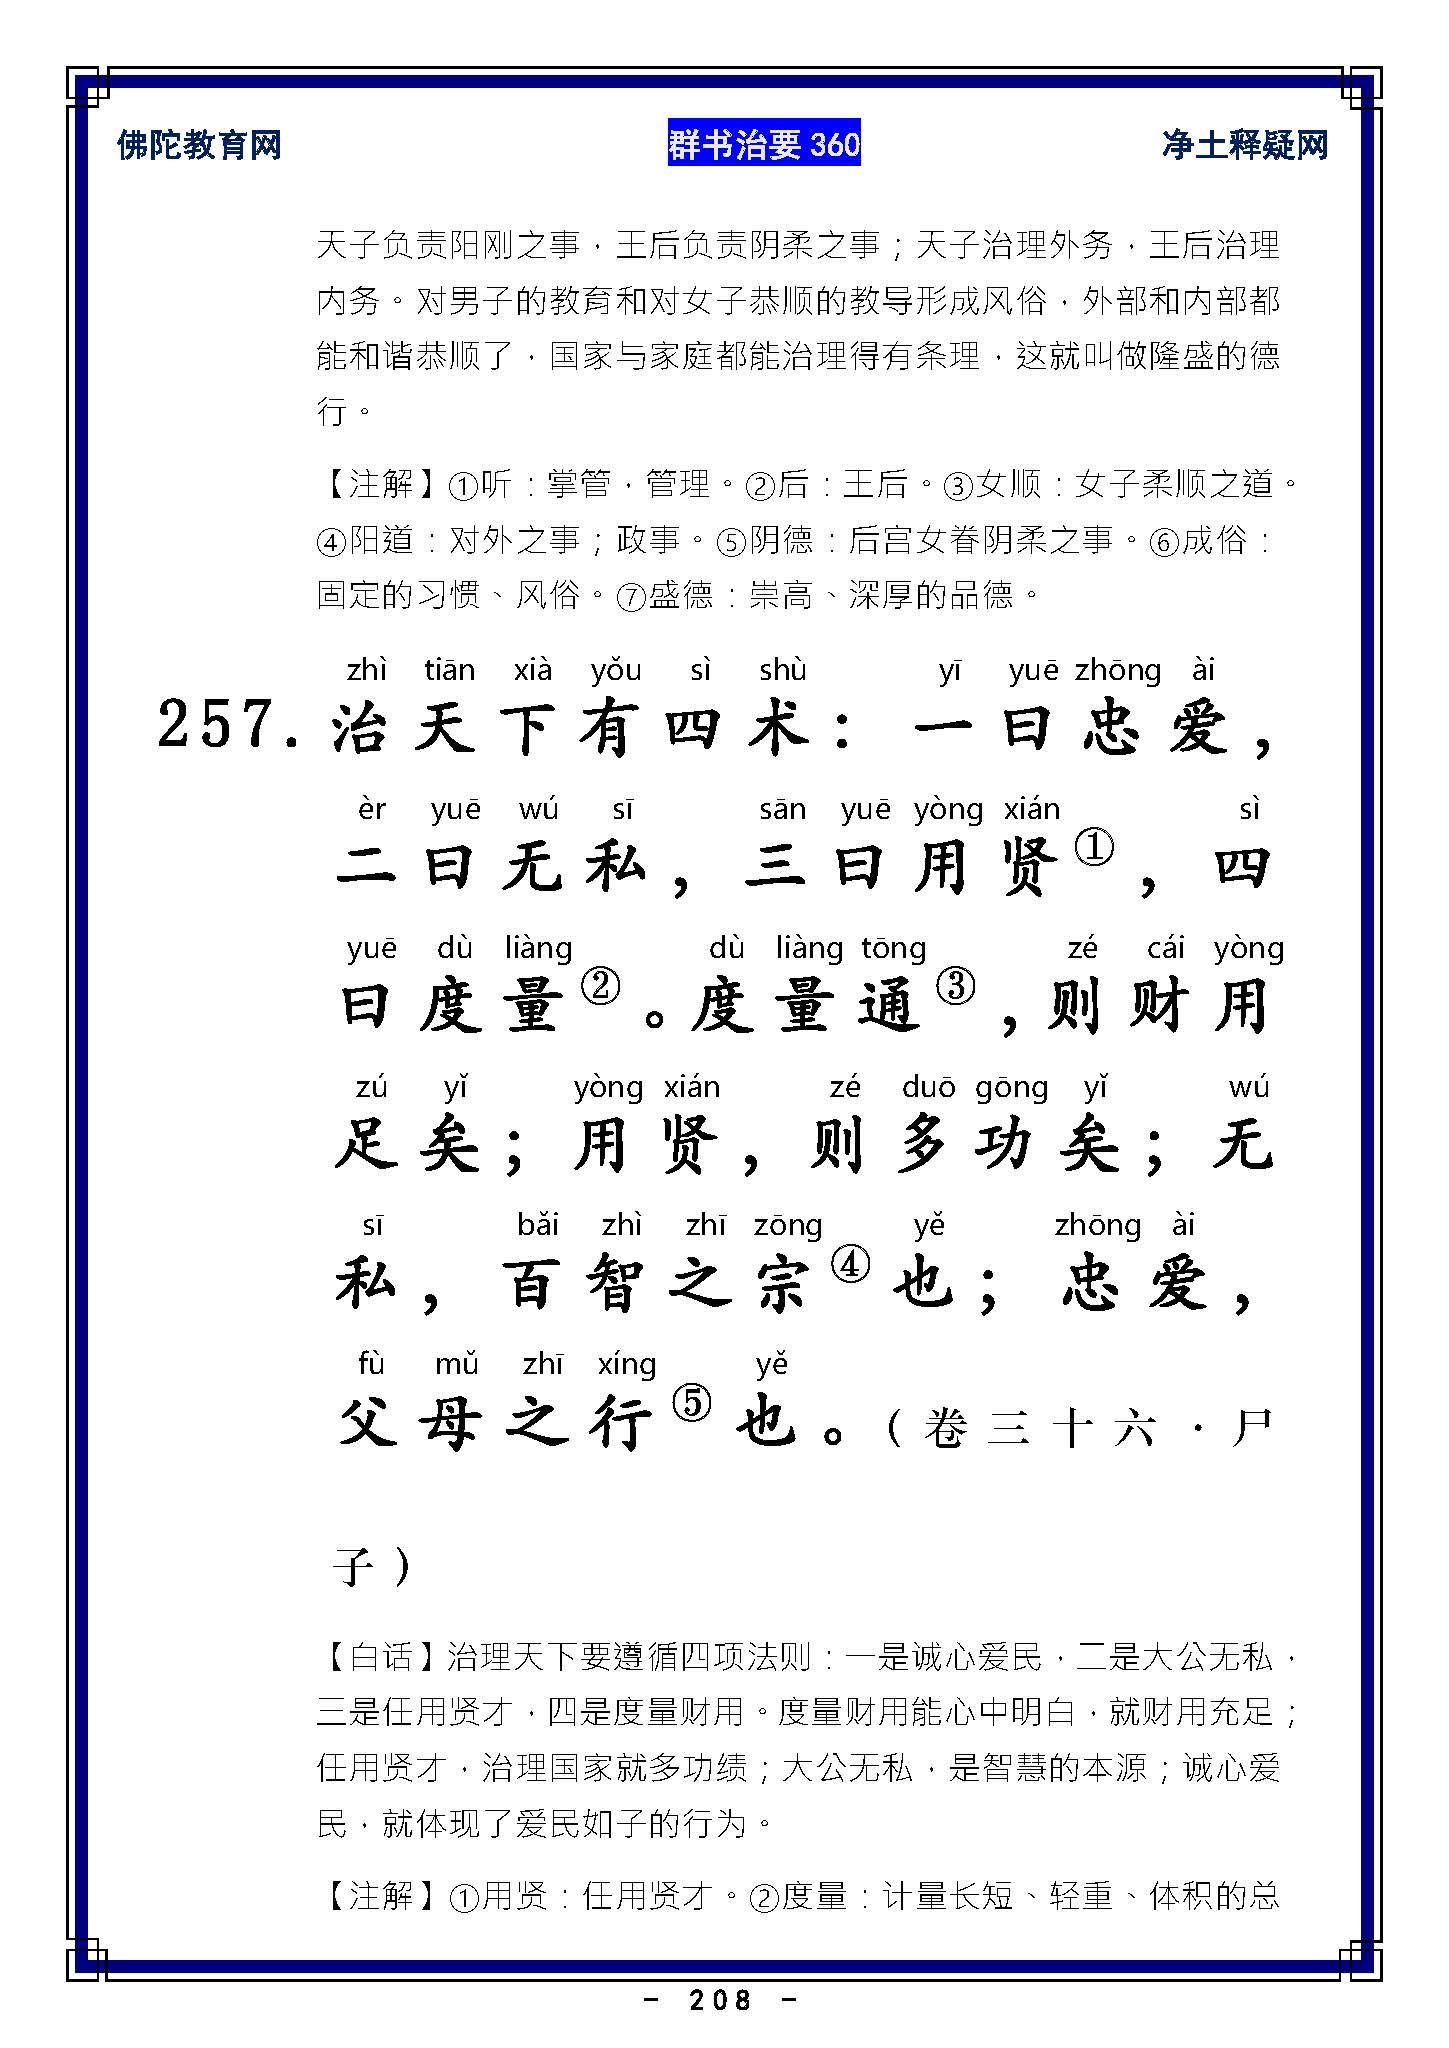 佛陀教育网 群书治要 360 净土释疑网
天子负责阳刚之事，王后负责阴柔之事；天子治理外务，王后治理
内务。对男子的教育和对女子恭顺的教导形成风俗，外部和内部都
能和谐恭顺了，国家与家庭都能治理得有条理，这就叫做隆盛的德
行。
【注解】①听：掌管，管理。②后：王后。③女顺：女子柔顺之道。
④阳道：对外之事；政事。⑤阴德：后宫女眷阴柔之事。⑥成俗：
固定的习惯、风俗。⑦盛德：崇高、深厚的品德。
zhì tiān xià yǒu sì shù yī yuē zhōng ài
257. 治天下有四术：一曰忠爱，
èr yuē wú sī sān yuē yòng xián sì
二曰无私，三曰用贤①，四
yuē dù liàng dù liàng tōng zé cái yòng
曰度量②。度量通③，则财用
zú yǐ yòng xián zé duō gōng yǐ wú
足矣；用贤，则多功矣；无
sī bǎi zhì zhī zōng yě zhōng ài
私，百智之宗④也；忠爱，
fù mǔ zhī xíng yě
父母之行⑤也。（卷三十六·尸
子）
【白话】治理天下要遵循四项法则：一是诚心爱民，二是大公无私，
三是任用贤才，四是度量财用。度量财用能心中明白，就财用充足；
任用贤才，治理国家就多功绩；大公无私，是智慧的本源；诚心爱
民，就体现了爱民如子的行为。
【注解】①用贤：任用贤才。②度量：计量长短、轻重、体积的总
- 208 -